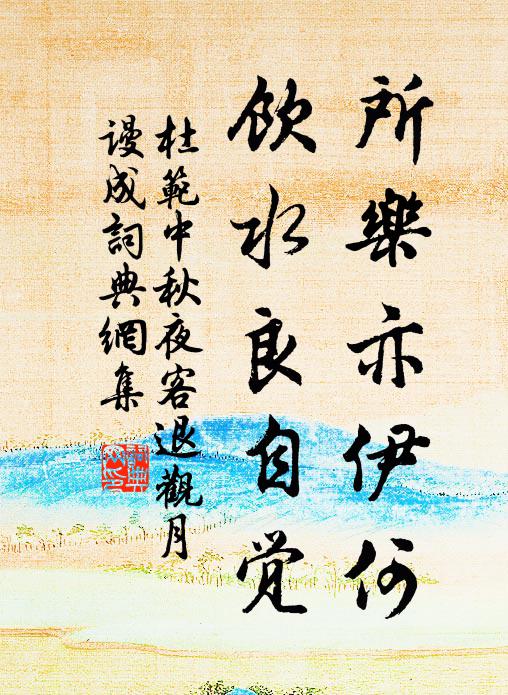 所樂亦伊何
飲水良自覚
杜範中秋夜客退觀月
謾成詞典網集